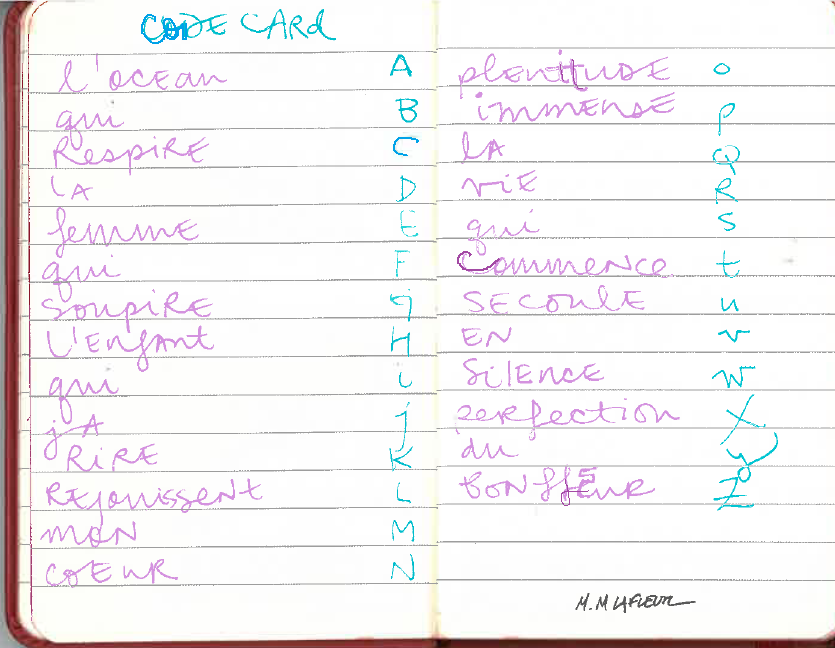 CODE CARD
l'OCEAN A
qui B
RESPIRE C
LA D
femme E
qui F
SOUPIRE G
L'ENfANT H
qui i
jA j
RiRE K
REjouissENt L
MON M
COEUR N
plENitUDE O
iMMENSE P
lA Q
ViE R
qui S
CommeNce t
SECOULE u
EN v
SilENCE W
PERfection X
du y
BONffEUR Z
M. M LAFLEUR